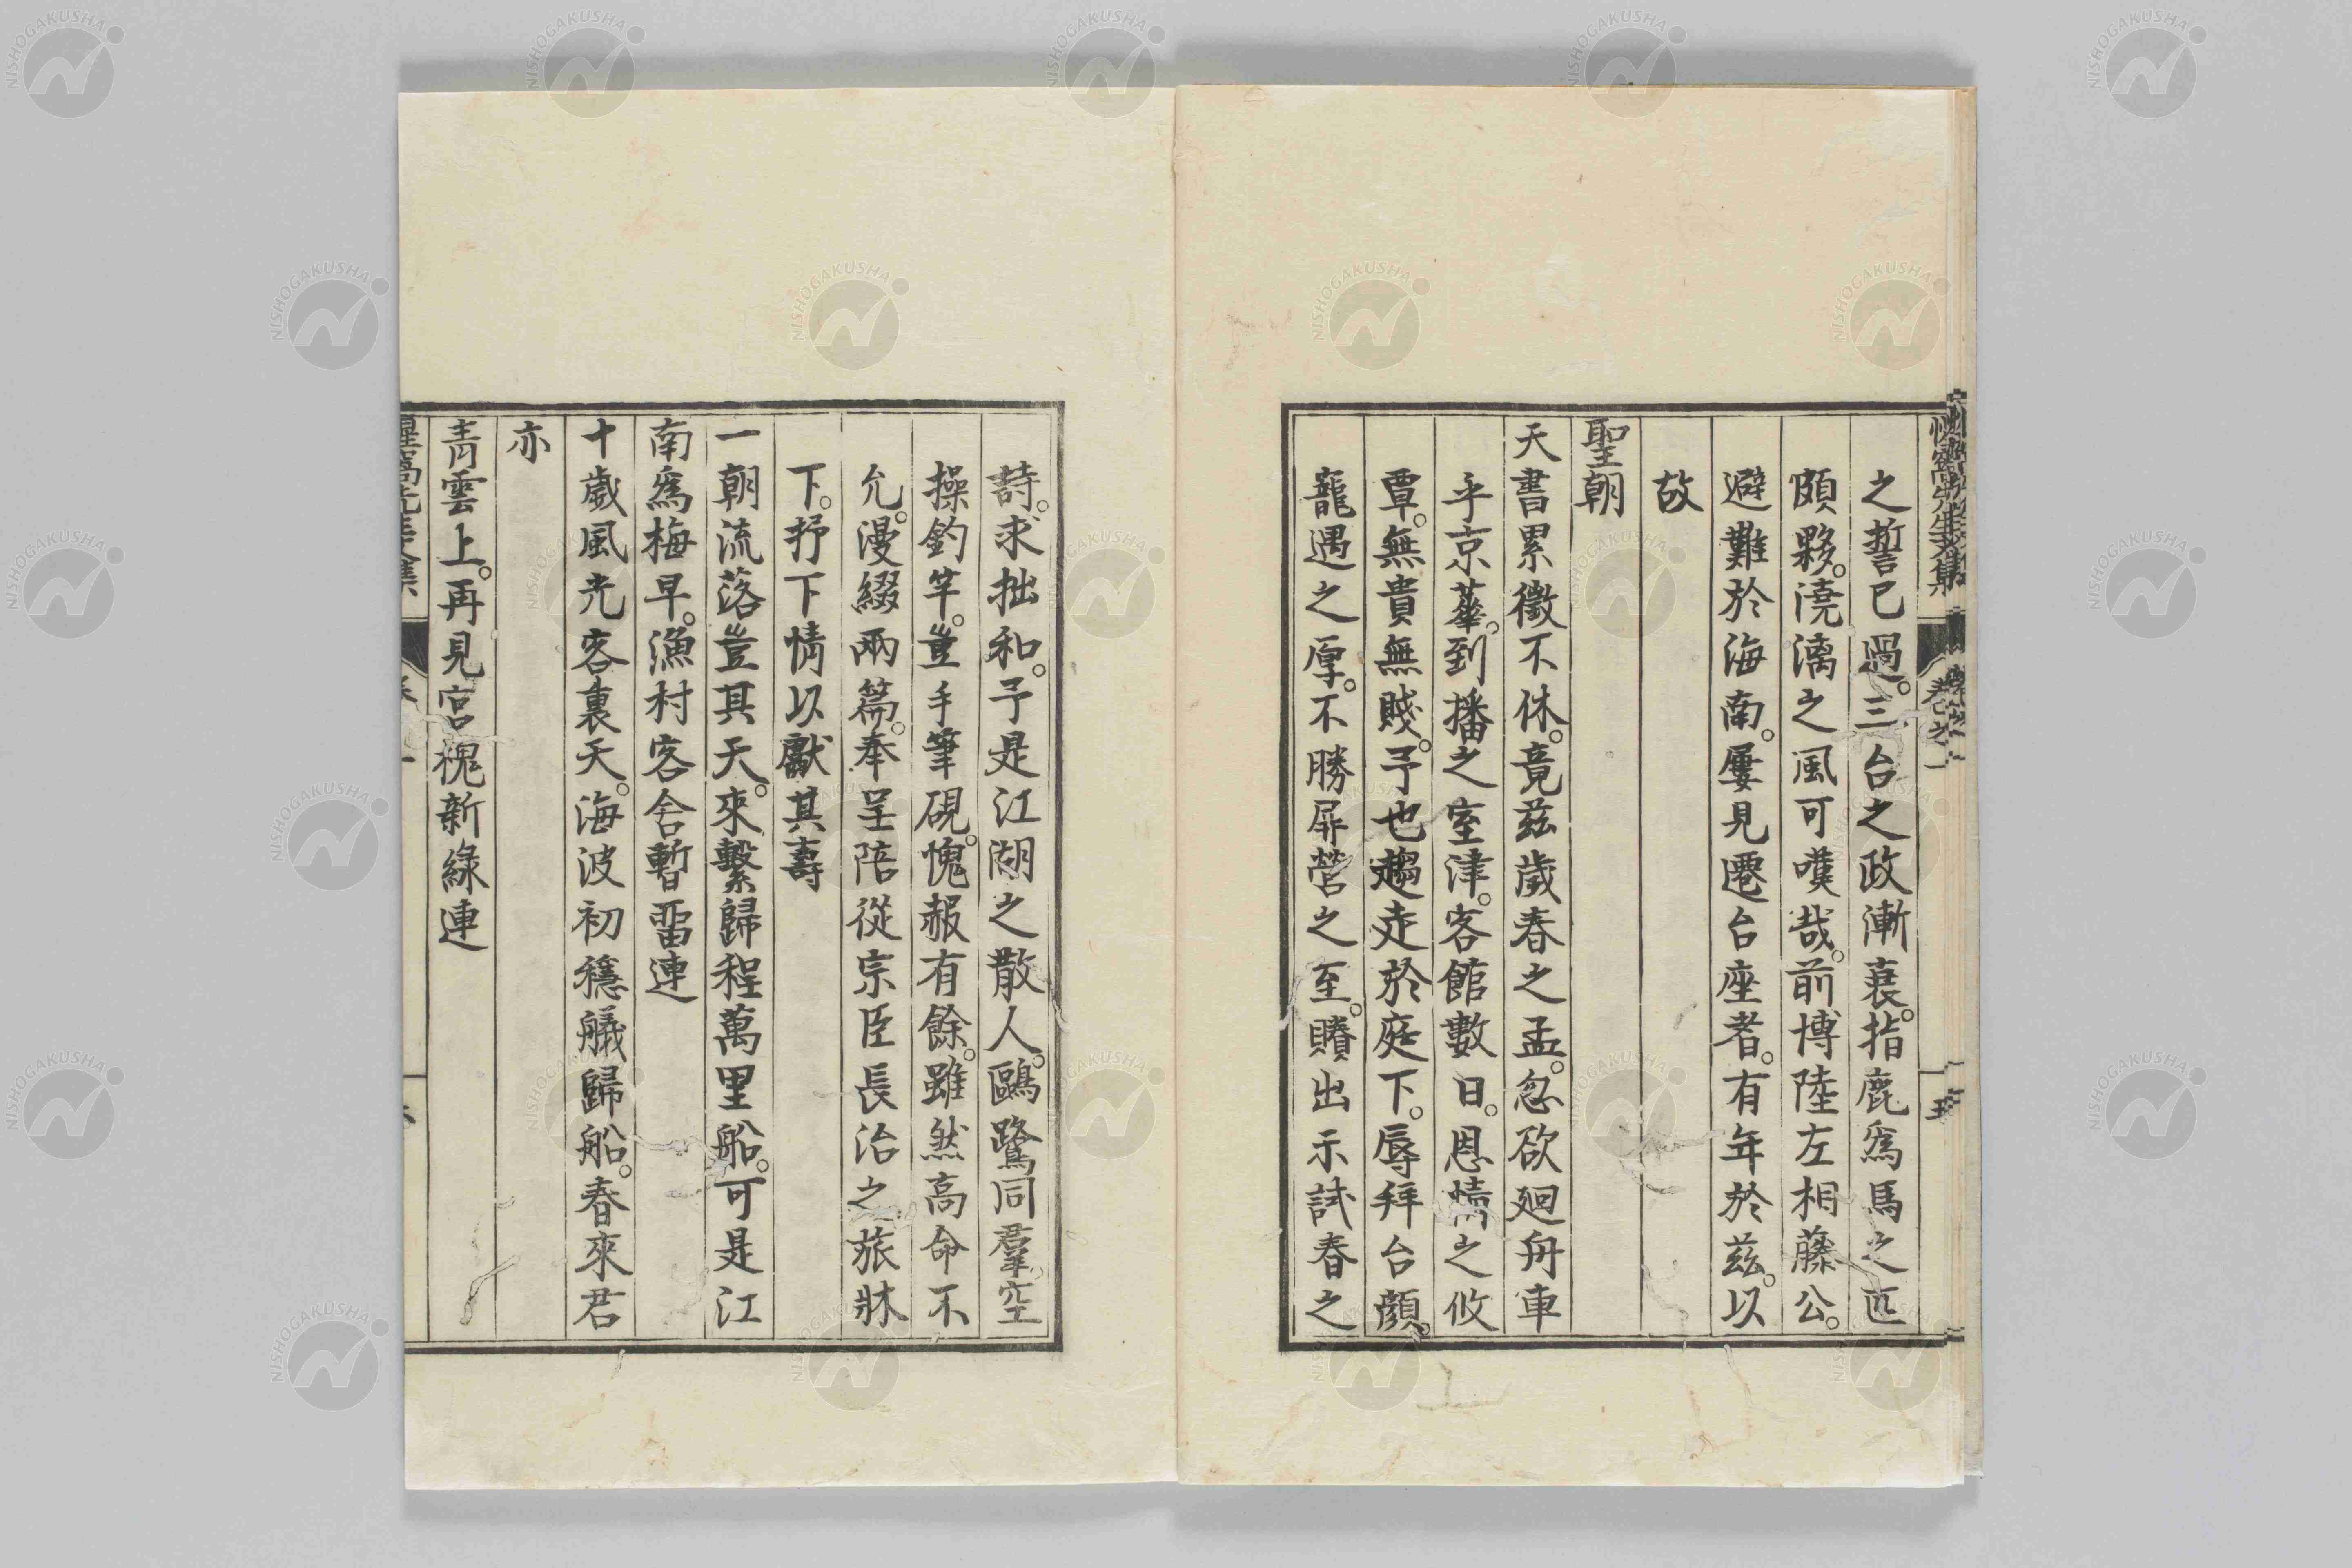 惺窩先生文集 卷之一 五
之誓已過。三台之政漸衰。指鹿爲馬之匹
頗夥。澆漓之風可嘆哉。前博陸左相藤公。
避難於海南。屢見遷台座者。有年於兹。以
故
聖朝
天書累徵不休。竟兹歲春之孟。忽欲廻舟車
乎京華。到播之室津。客館數日。恩情之攸
覃。無貴無賤。予也趨走於庭下。辱拜台顔。
寵遇之厚。不勝屏營之至。賸出示試春之
詩。求拙和。予是江湖之散人。鷗鷺同羣。空
操釣竿。豈手筆硯。愧赧有餘。雖然高命不
允。漫綴兩篇。奉呈陪從宗臣長治之旅牀
下。抒下情以獻其壽
一朝流落豈其天。來繫歸程萬里船。可是江
南爲梅早。漁村客舍暫畱連
十歲風光客裏天。海波初穩艤歸船。春來君
亦
青雲上。再見宮槐新綠連